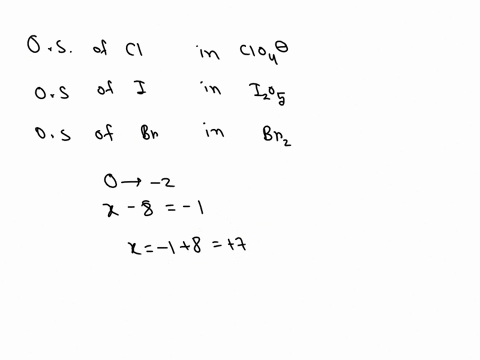 O.S. of Cl in ClO₄⊖
O.S of I in I₂O₅
O.S of Br in Br₂
O → -2
x - 8 = -1
x = -1 + 8 = +7